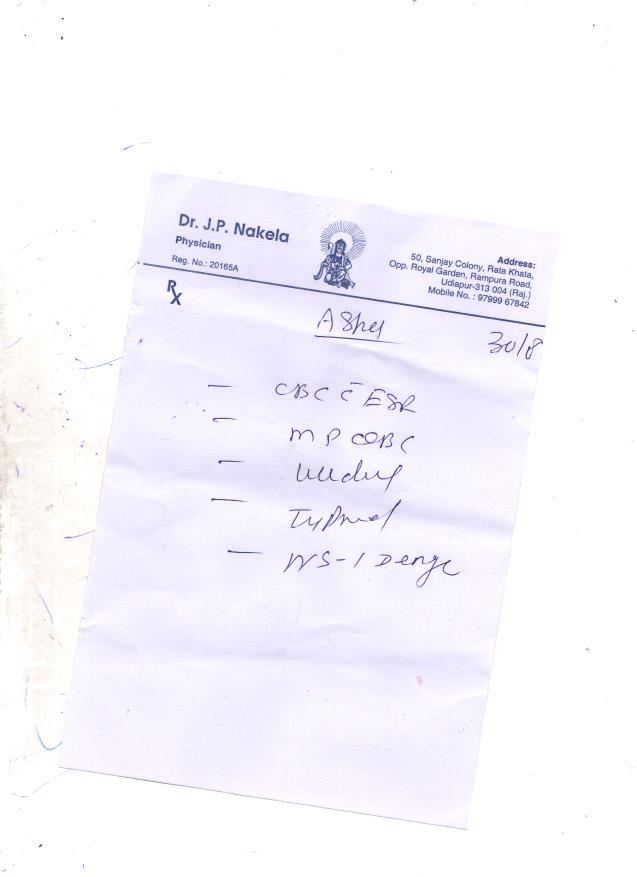 Dr. J.P. Nakela
Physician
Reg. No.: 20165A
Address:
50, Sanjay Colony, Rata Khata,
Opp. Royal Garden, Rampura Road,
Udiapur-313 004 (Raj.)
Mobile No. : 97999 67842
Rx
30/8
- CBC c̄ ESR
- MP QBC
-
- Typhoid
- NS-1 Denge